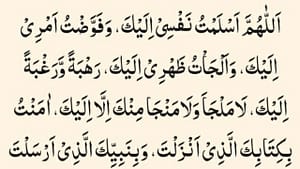 اَللّٰهُمَّ اَسْلَمْتُ نَفْسِيْ اِلَيْكَ، وَفَوَّضْتُ اَمْرِيْ
اِلَيْكَ، وَاَلْجَأْتُ ظَهْرِيْ اِلَيْكَ، رَهْبَةً وَّرَغْبَةً
اِلَيْكَ، لَا مَلْجَأَ وَلَا مَنْجَا مِنْكَ اِلَّا اِلَيْكَ، اٰمَنْتُ
بِكِتَابِكَ الَّذِيْ اَنْزَلْتَ، وَبِنَبِيِّكَ الَّذِيْ اَرْسَلْتَ